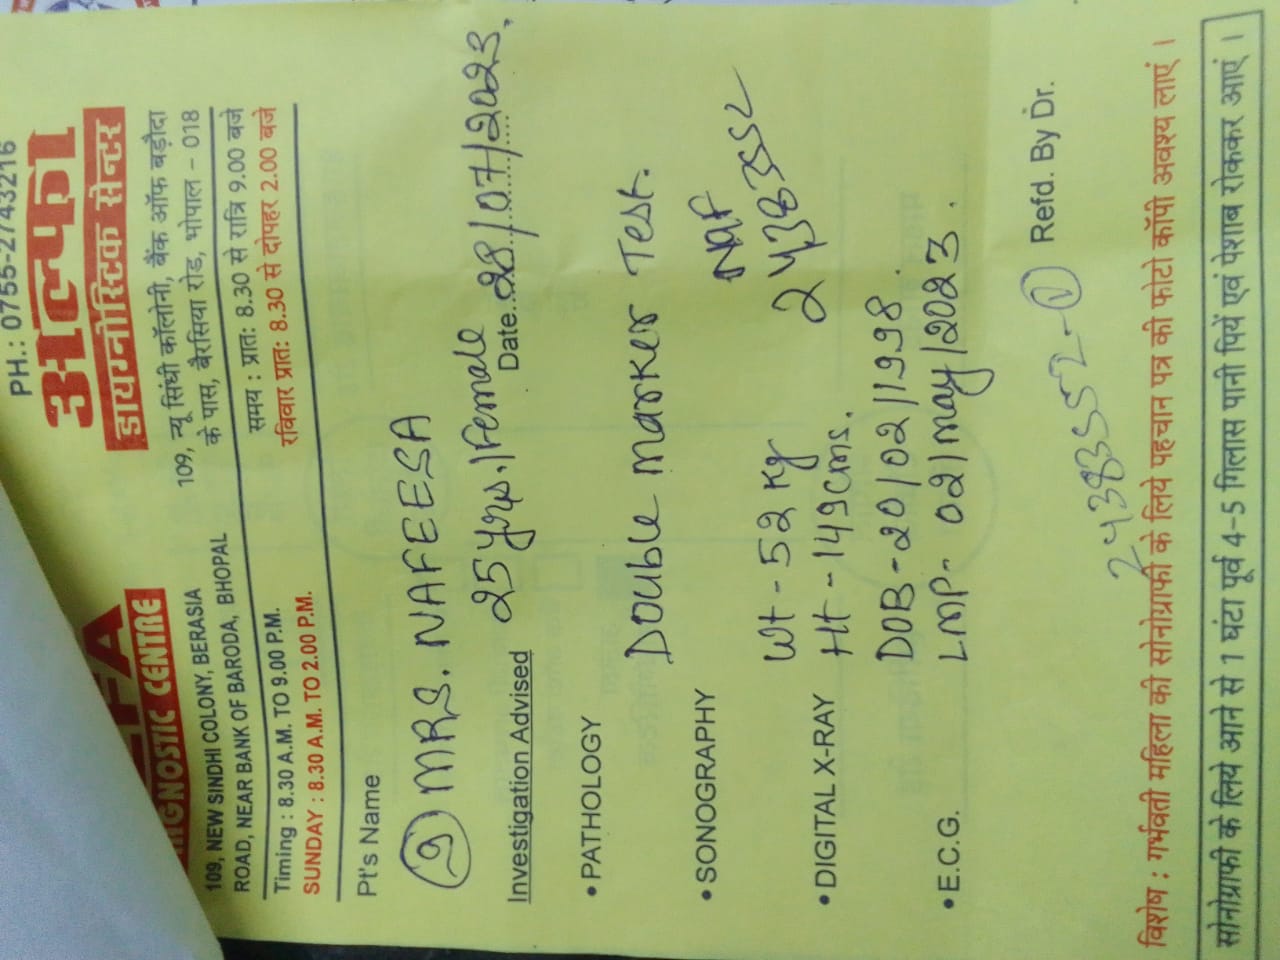 PH.: 0755-2743216
अल्फा
डायग्नोस्टिक सेन्टर
109, न्यू सिंधी कॉलोनी, बैंक ऑफ बड़ौदा
के पास, बैरसिया रोड, भोपाल - 018
समय : प्रातः 8.30 से रात्रि 9.00 बजे
रविवार प्रातः 8.30 से दोपहर 2.00 बजे
CENTRE
109, NEW SINDHI COLONY, BERASIA
ROAD, NEAR BANK OF BARODA, BHOPAL
Timing : 8.30 A.M. TO 9.00 P.M.
SUNDAY : 8.30 A.M. TO 2.00 P.M.
Pt's Name
9 MRS. NAFEESA
25 yrs. / Female
Date..28/07/2023.
Investigation Advised
• PATHOLOGY
Double Marker Test.
• SONOGRAPHY
Wt - 52 Kg
Ht - 149 cms.
24383552
• DIGITAL X-RAY
DOB - 20/02/1998
LMP - 02/may/2023.
• E.C.G.
Refd. By Dr.
24383552-1
विशेष : गर्भवती महिला की सोनोग्राफी के लिये पहचान पत्र की फोटो कॉपी अवश्य लाएं ।
सोनोग्राफी के लिये आने से 1 घंटा पूर्व 4-5 गिलास पानी पियें एवं पेशाब रोककर आएं ।